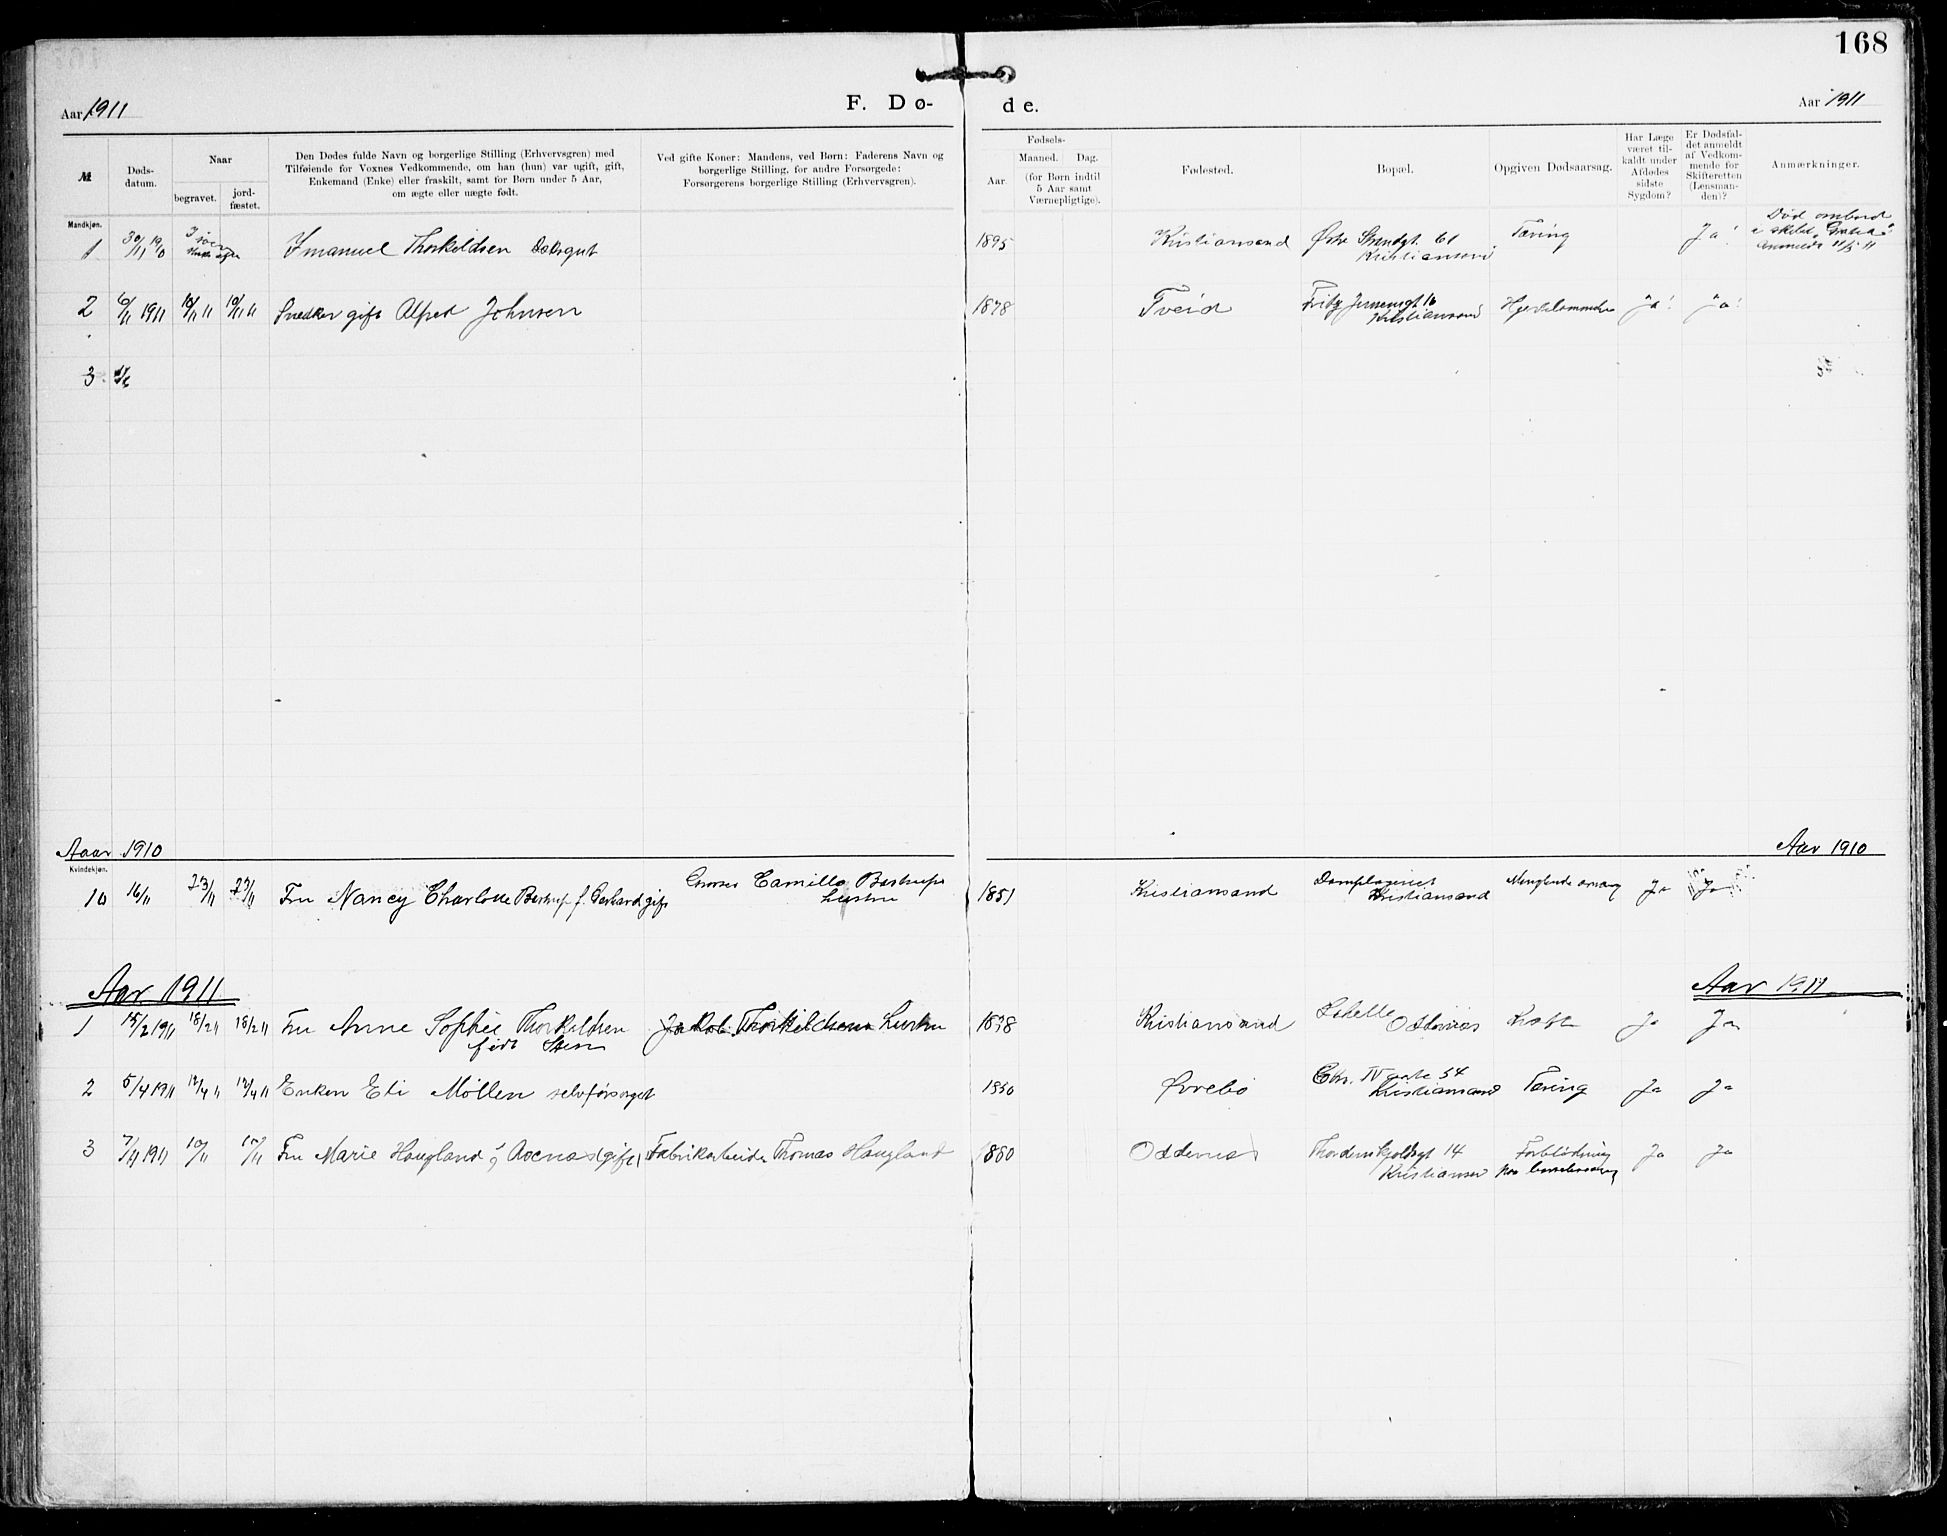 168
Aar 1911
F. Dø-
de.
Aar 1911
№
Døds-
datum.
Naar
begravet.
jord-
fæstet.
Den Dødes fulde Navn og borgerlige Stilling (Erhvervsgren) med
Tilføiende for Voxnes Vedkommende, om han (hun) var ugift, gift,
Enkemand (Enke) eller fraskilt, samt for Børn under 5 Aar,
om ægte eller uægte født.
Ved gifte Koner: Mandens, ved Børn: Faderens Navn og
borgerlige Stilling, for andre Forsørgede:
Forsørgerens borgerlige Stilling (Erhvervsgren).
Fødsels-
Aar.
Maaned.
Dag.
(for Børn indtil
5 Aar samt
Værnepligtige).
Fødested.
Bopæl.
Opgiven Dødsaarsag.
Har Læge
været til-
kaldt under
Afdødes
sidste
Sygdom?
Er Dødsfal-
det anmeldt
af Vedkom-
mende for
Skifteretten
(Lensman-
den)?
Anmærkninger.
Mandkjøn.
1 30/11 1910 Imanuel Thorkildsen Daksgut 1895 Kristiansand Østre Strandgt. 61 Kristiansand Tæring Ja! Død ombord
2 6/11 1911 10/11 11 10/11 11 Snedker gift Alfred Johnsen 1878 Tveid Kristiansand Ja! Ja!
3
Aaar 1910
Aar 1910
Kvindekjøn.
10 16/11 23/11 23/11 Fru Nancy Charlotte Bastrup f. Gerhard gift Camillo Bastrups 1851 Kristiansand Kristiansand Ja Ja
Hustru
Aar 1911
Aar 1911
1 15/2 1911 18/2 11 18/2 11 Fru Anne Sophie Thorkildsen Jakob Thorkildsens Hustru 1838 Kristiansand Oddernes Kræft Ja Ja
født Steen
2 5/4 1911 12/4 11 12/4 11 Enken Eli Mollen selvforsørget 1850 Øvrebø Chr. IV gate 54 Kristiansand Tæring Ja Ja
3 7/11 1911 10/11 10/11 Fru Marie Haugland (gift) Fabrikarbeider Thomas Haugland 1880 Oddernes Thordenskjoldsgt 14 Kristiansand Forblødning Ja Ja